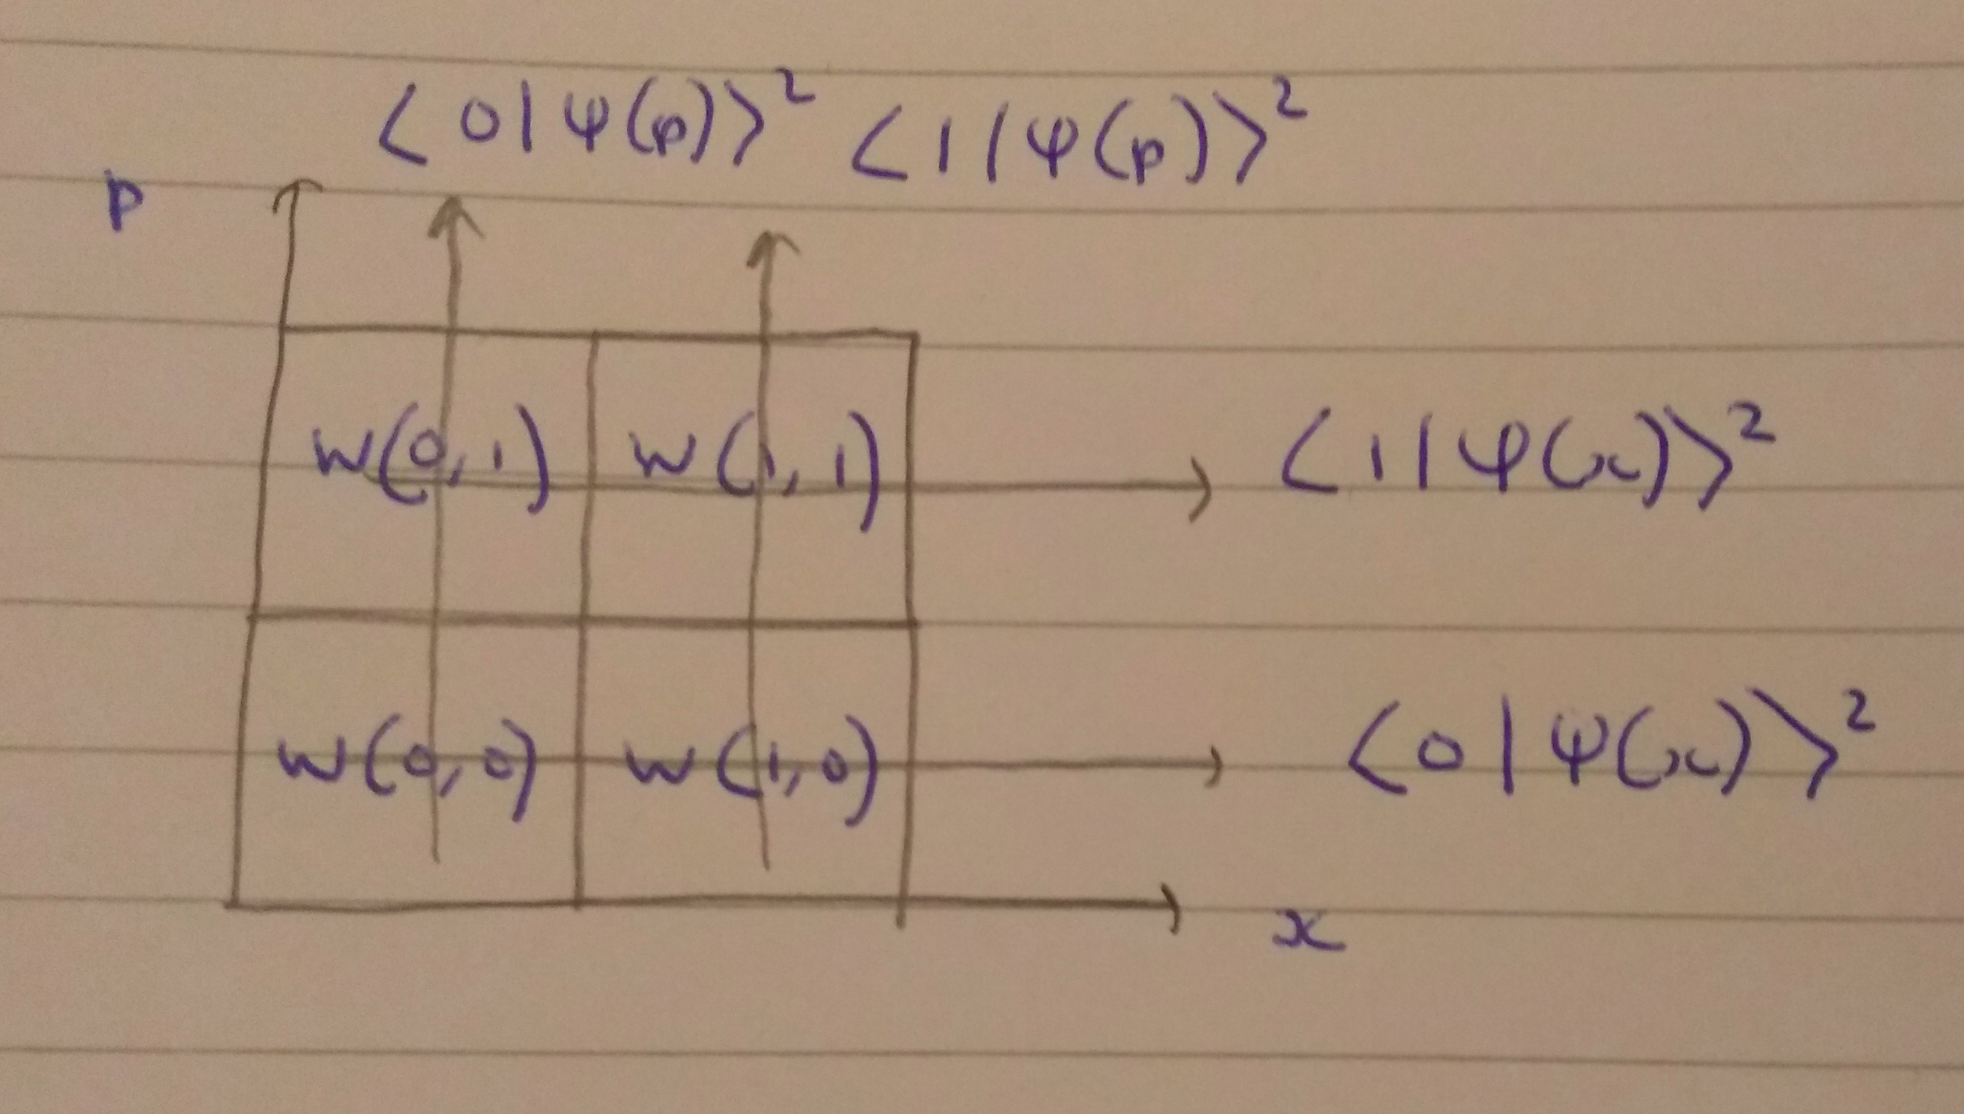 ⟨0|ψ(p)⟩² ⟨1|ψ(p)⟩²
p
w(0,1) w(1,1) ⟨1|ψ(x)⟩²
w(0,0) w(1,0) ⟨0|ψ(x)⟩²
x